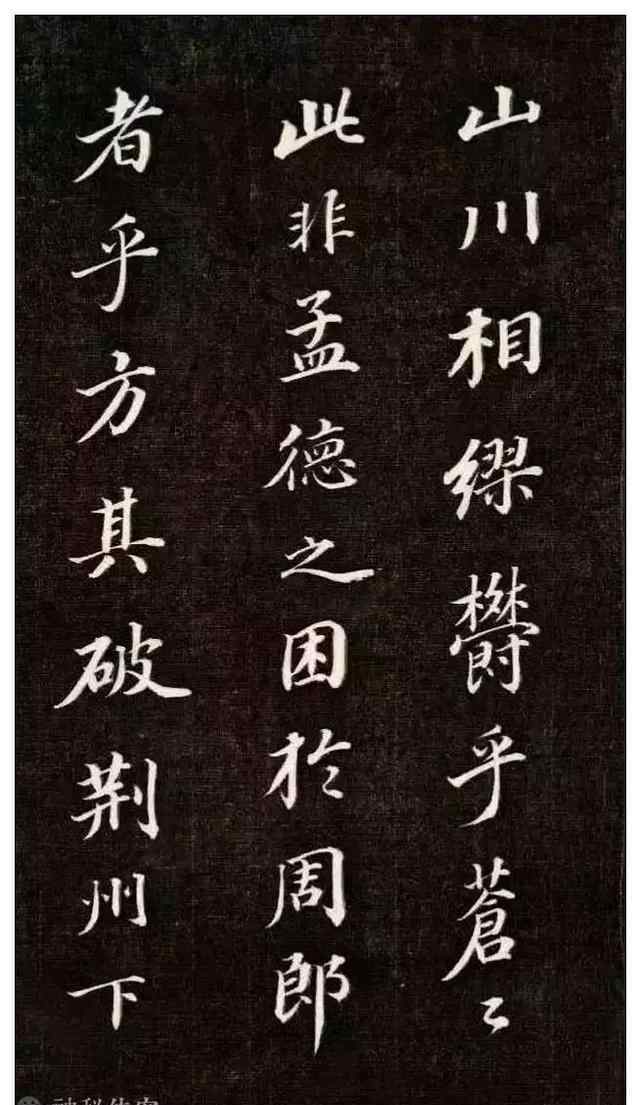 山川相缪欝乎蒼〻
此非孟德之困於周郎
者乎方其破荆州下